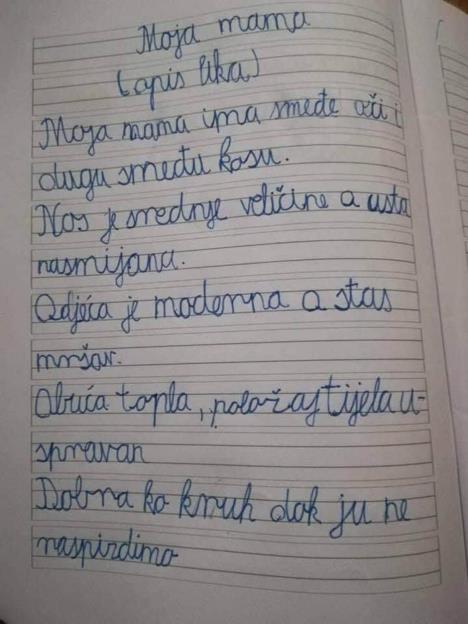 Moja mama
(opis lika)
Moja mama ima smeđe oči i
dugu smeđu kosu.
Nos je srednje veličine a usta
nasmijana.
Odjeća je moderna a stas
mršav.
Obuća topla, položaj tijela u-
spravan
Dobra ko kruh dok ju ne
naspizdimo